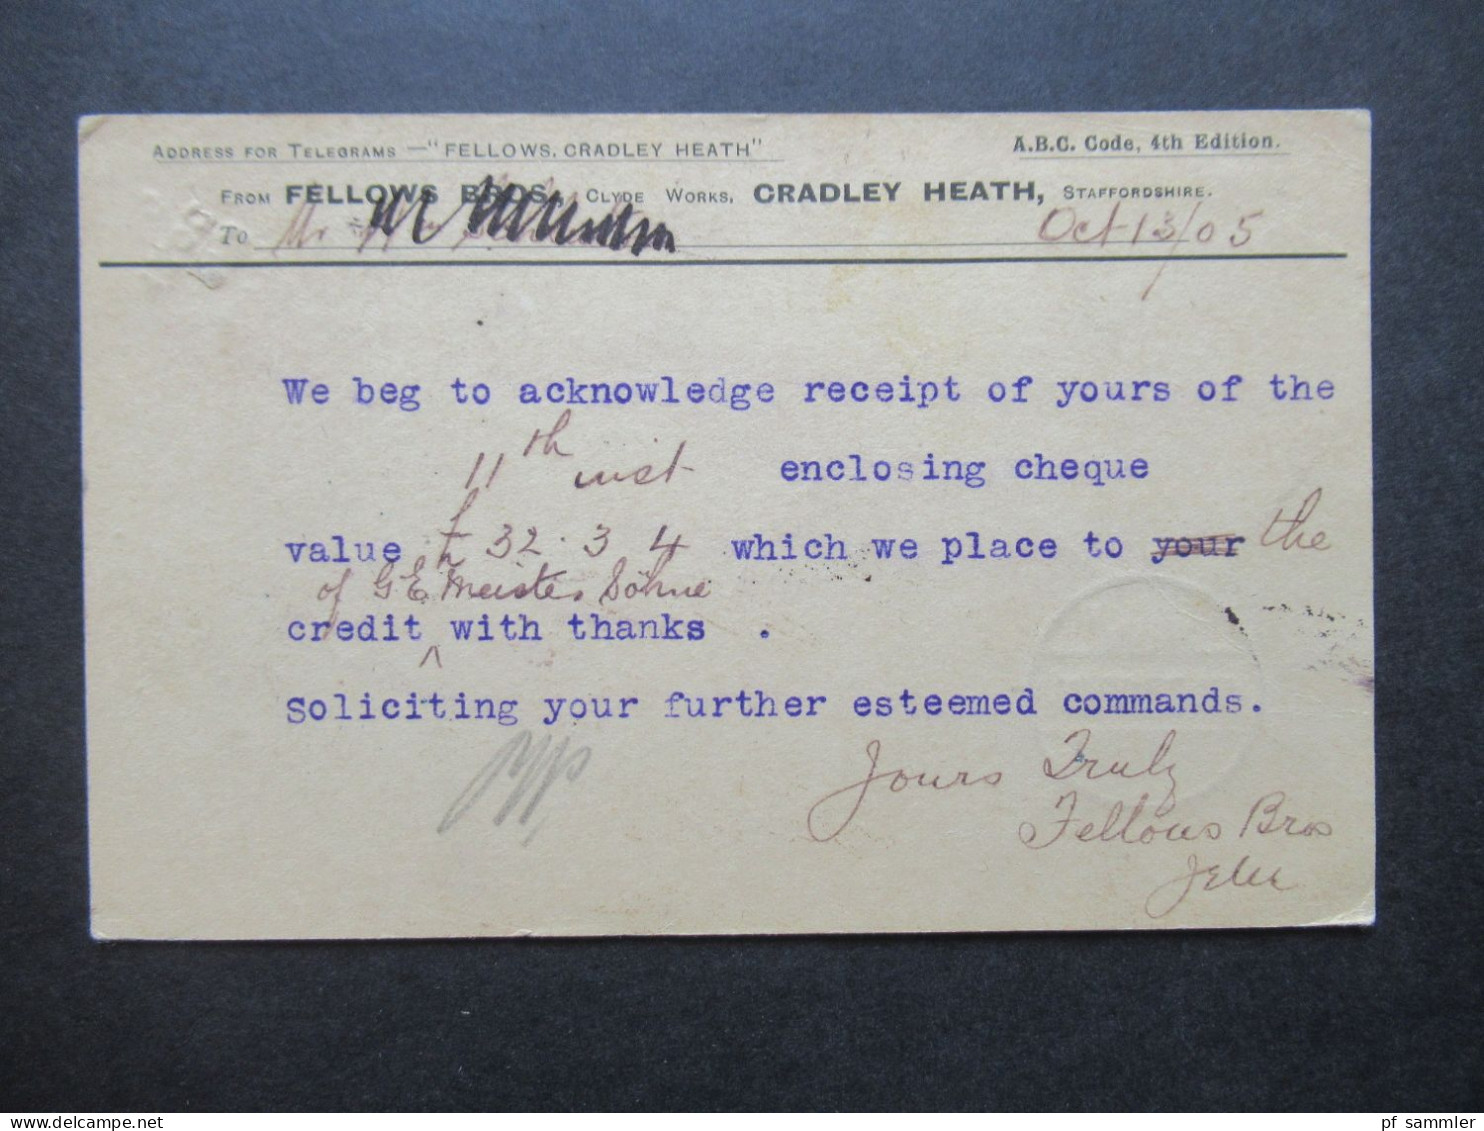 Address for Telegrams —"FELLOWS, CRADLEY HEATH"
A.B.C. Code, 4th Edition.
From FELLOWS BROS., Clyde Works, CRADLEY HEATH, Staffordshire.
To Mr Oct 13/05
We beg to acknowledge receipt of yours of the
11th inst enclosing cheque
value £32.3.4 which we place to your the
of G E Meister Söhne
credit ^ with thanks .
Soliciting your further esteemed commands.
Yours Truly
Fellows Bros
pf sammler
delcampe.net